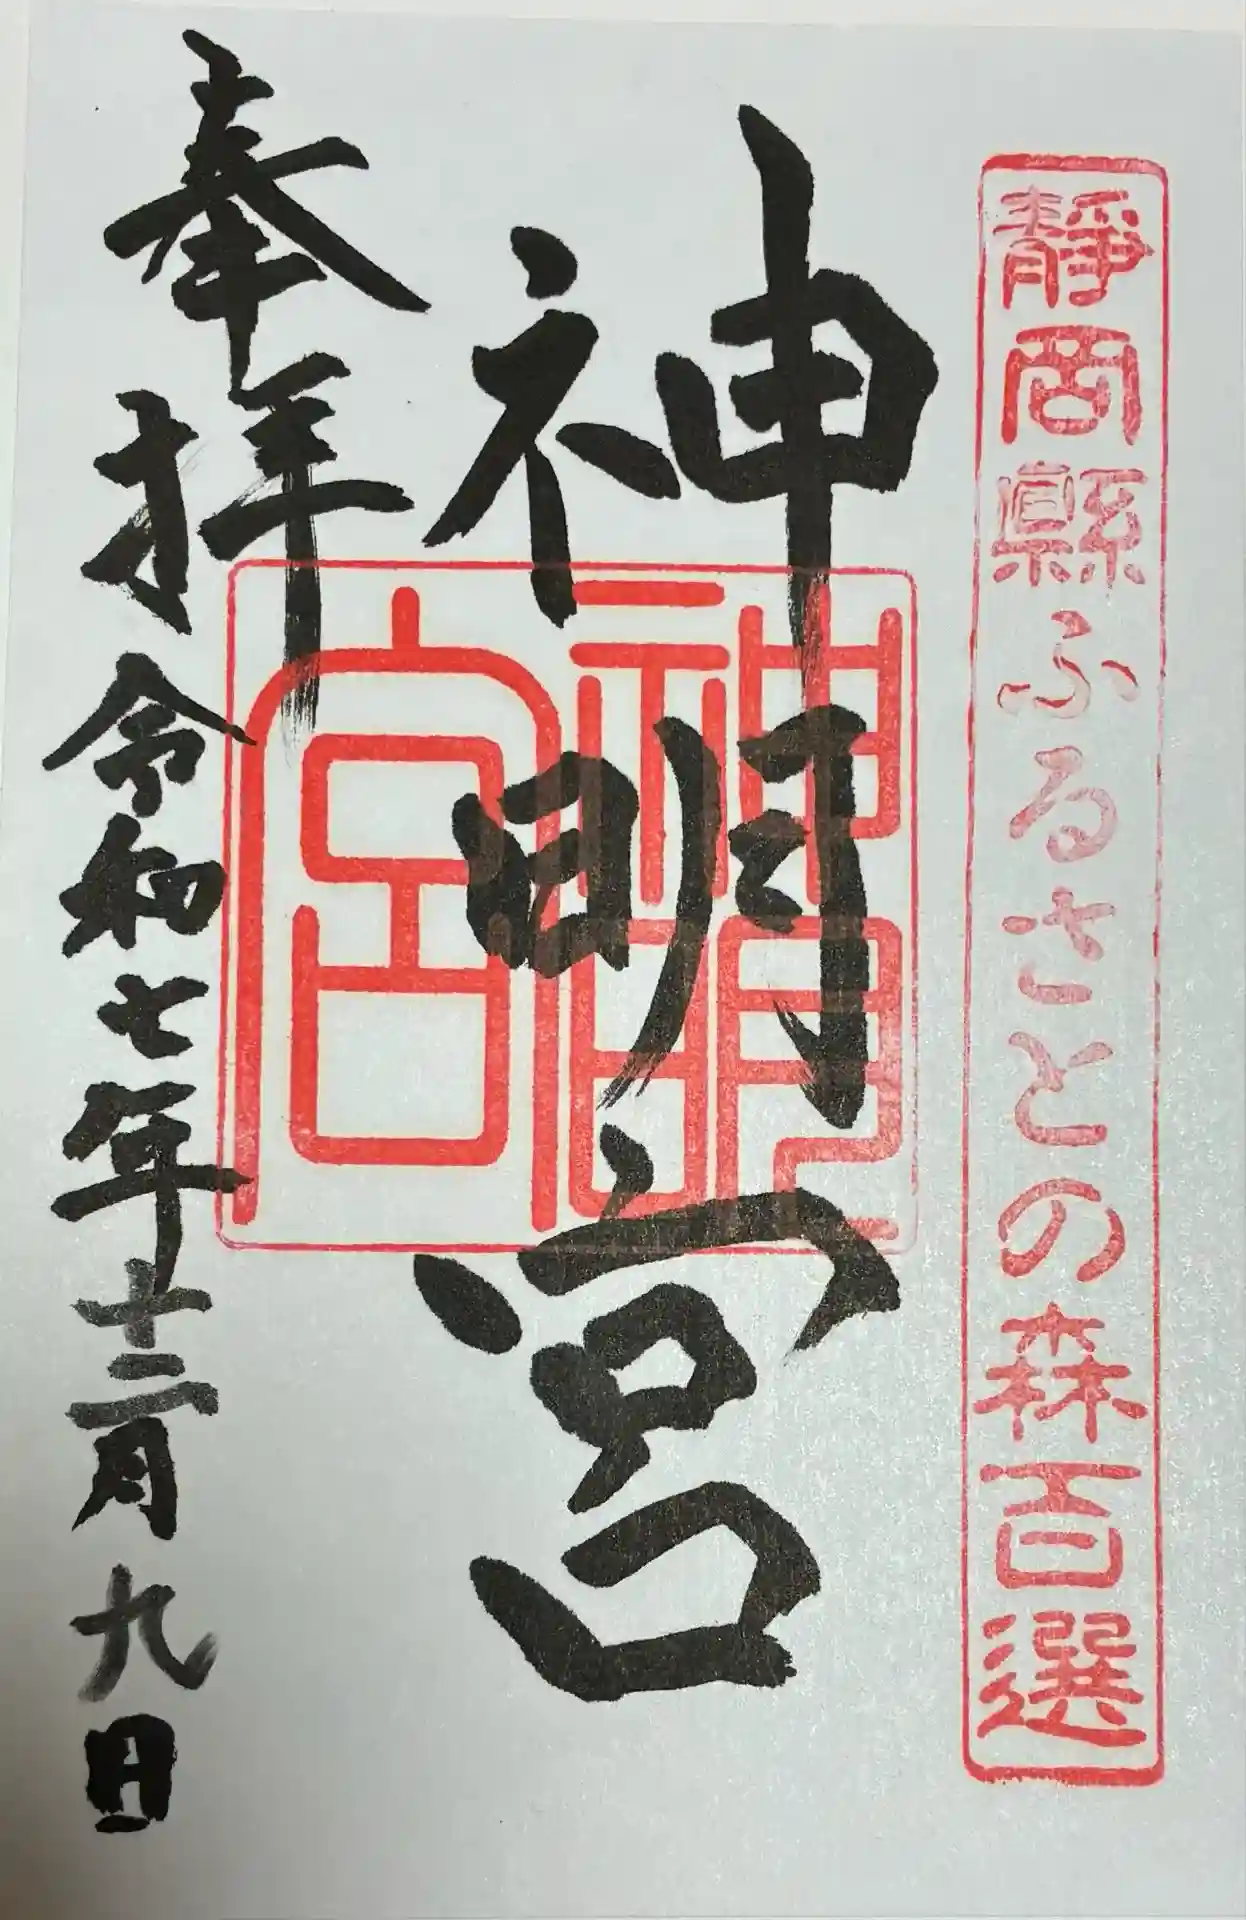 靜岡縣ふるさとの森百選
神明宮
神明宮
奉拝
令和七年十二月九日